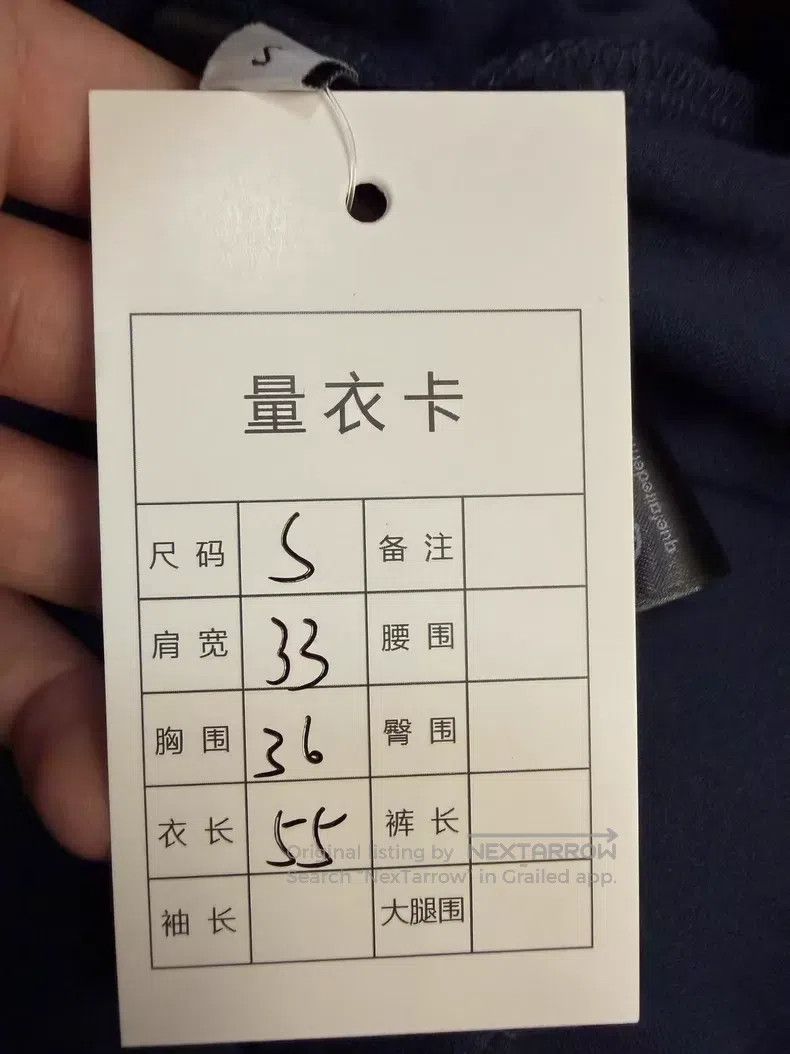 S
量衣卡
尺码 S 备注
肩宽 33 腰围
胸围 36 臀围
衣长 55 裤长
Original listing by NEXTARROW
Search "NexTarrow" in Grailed app.
袖长 大腿围